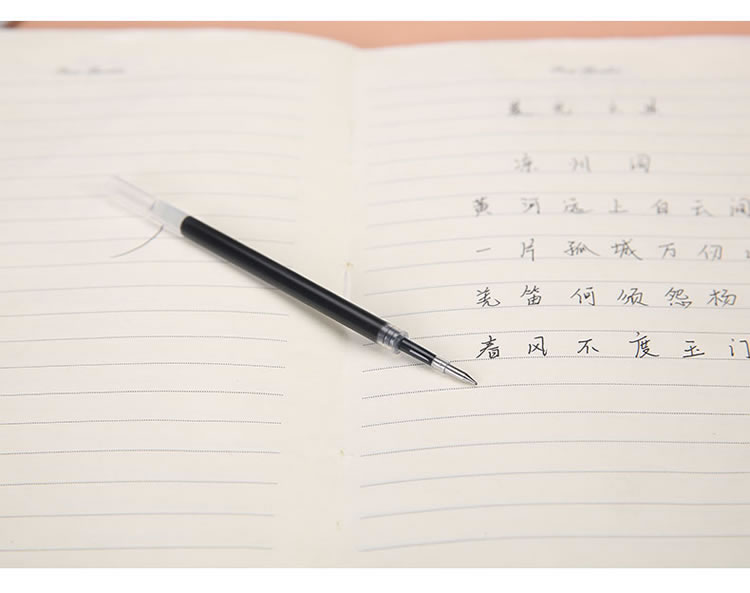 凉 州 词
黄 河 远 上 白 云 间
一 片 孤 城 万 仞
羌 笛 何 须 怨 杨
春 风 不 度 玉 门